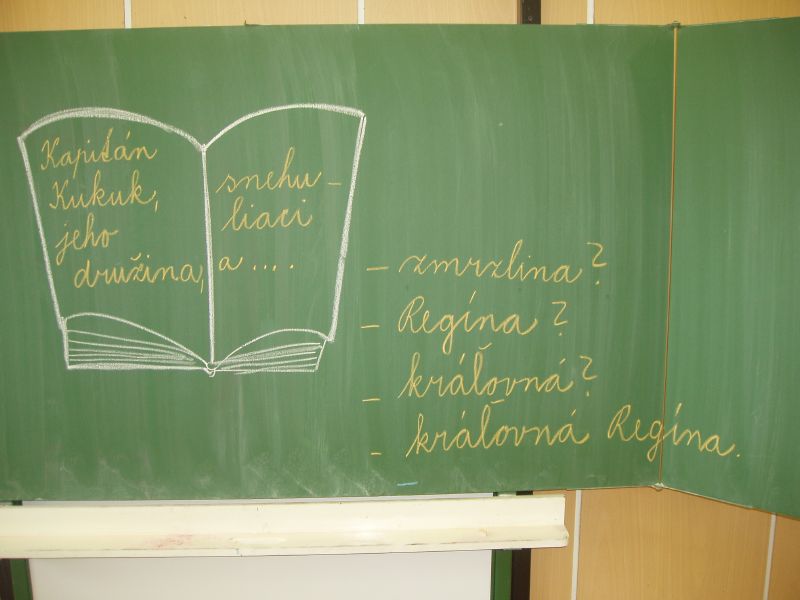 Kapitán
Kukuk,
jeho
družina,
snehu-
liaci
a ....
- zmrzlina?
- Regína?
- kráľovná?
- kráľovná Regína.